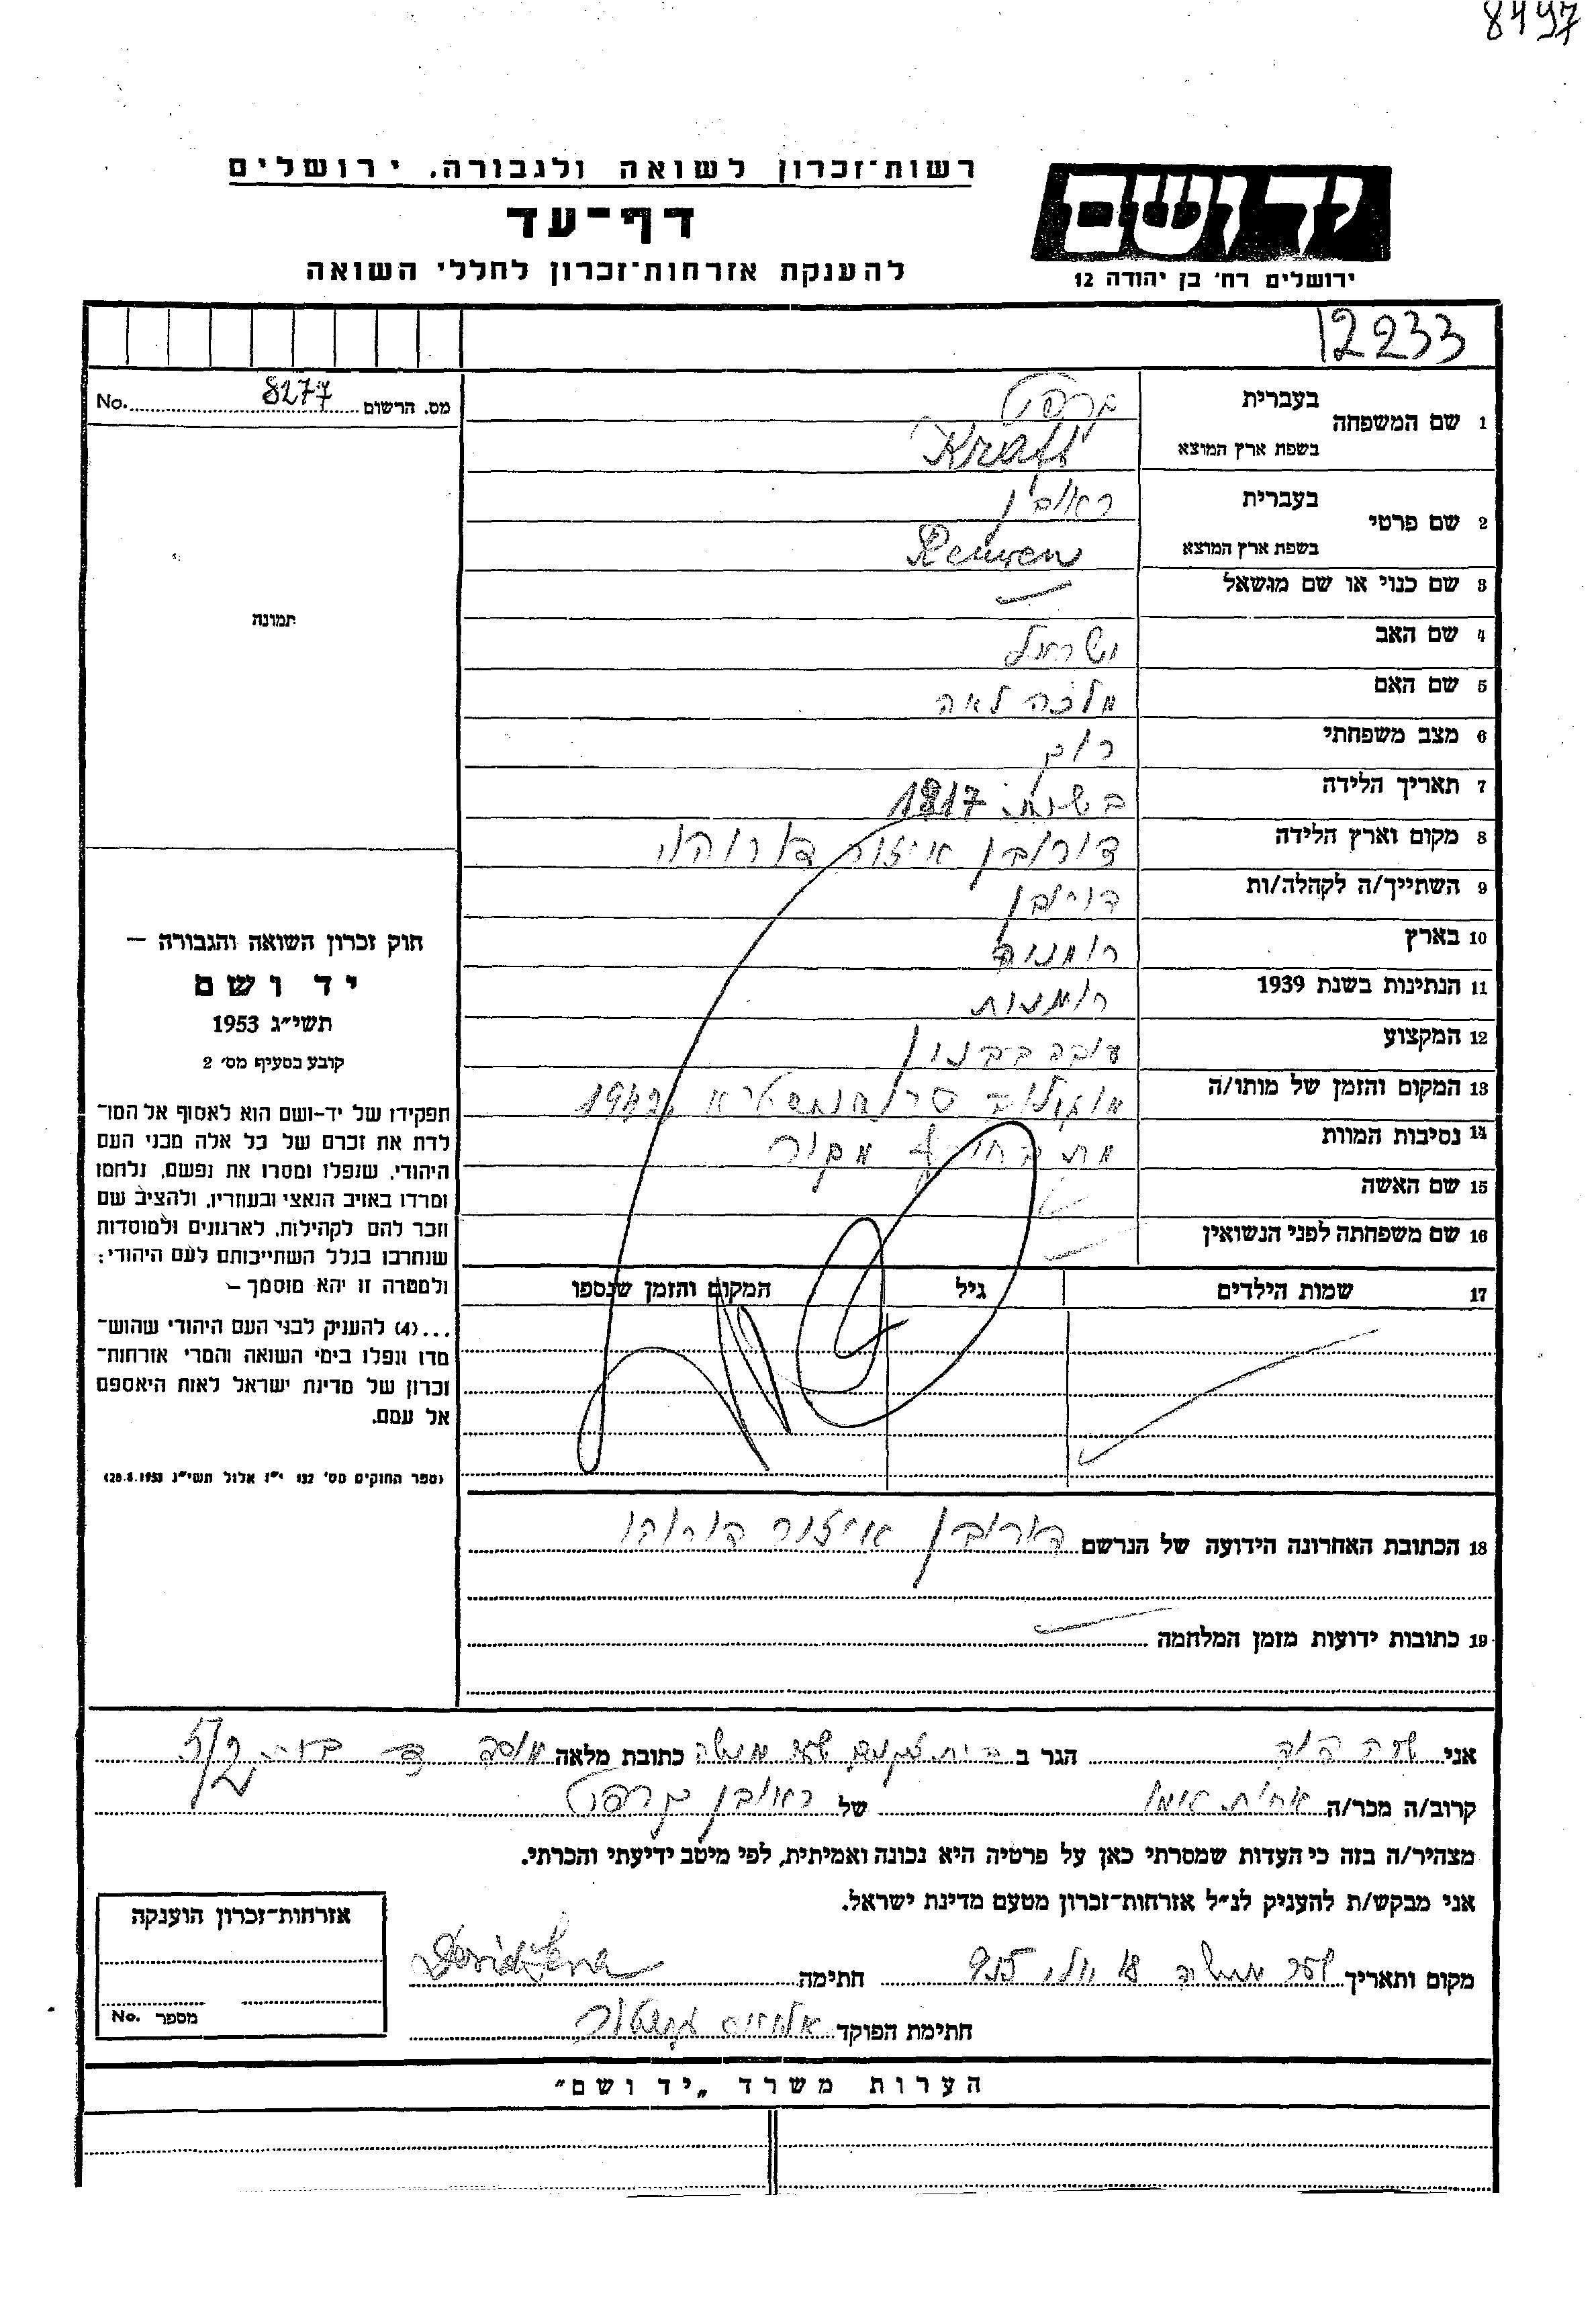 8497
רשות-זכרון לשואה ולגבורה. ירושלים
דף-עד
להענקת אזרחות-זכרון לחללי השואה
יד ושם
ירושלים רח' בן יהודה 12
12233
מס. הרשום 8277 No.
1 שם המשפחה בעברית קרפט
בשפת ארץ המוצא Kraft
2 שם פרטי בעברית ראובן
בשפת ארץ המוצא Reuwen
3 שם כנוי או שם מושאל
4 שם האב ישראל
5 שם האם מלכה לאה
6 מצב משפחתי רוק
7 תאריך הלידה בשנת 1917
8 מקום וארץ הלידה דורובן איזור דורוהוי
9 השתייך/ה לקהלה/ות
10 בארץ רומניה
11 הנתינות בשנת 1939 רומנית
12 המקצוע עובד בבנין
13 המקום והזמן של מותו/ה
14 נסיבות המוות מת בחורף מקור
15 שם האשה
16 שם משפחתה לפני הנשואין
17 שמות הילדים גיל המקום והזמן שנספו
18 הכתובת האחרונה הידועה של הנרשם דורובן איזור דורוהוי
19 כתובות ידועות מזמן המלחמה
תמונה
חוק זכרון השואה והגבורה –
יד ושם
תשי"ג 1953
קובע בסעיף מס' 2
תפקידו של יד-ושם הוא לאסוף אל המו-
לדת את זכרם של כל אלה מבני העם
היהודי, שנפלו ומסרו את נפשם, נלחמו
ומרדו באויב הנאצי ובעוזריו, ולהציב שם
וזכר להם לקהילות, לארגונים ולמוסדות
שנחרבו בגלל השתייכותם לעם היהודי;
ולמטרה זו יהא מוסמך –
...(4) להעניק לבני העם היהודי שהוש-
מדו ונפלו בימי השואה והמרי אזרחות-
זכרון של מדינת ישראל לאות היאספם
אל עמם.
(ספר החוקים מס' 132 י"ז אלול תשי"ג 28.8.1953)
אני הגר ב שער מנשה כתובת מלאה
קרוב/ה מכר/ה של ראובן קרפט
מצהיר/ה בזה כי העדות שמסרתי כאן על פרטיה היא נכונה ואמיתית, לפי מיטב ידיעתי והכרתי.
אני מבקש/ת להעניק לנ"ל אזרחות-זכרון מטעם מדינת ישראל.
מקום ותאריך שער מנשה 18 יולי חתימה
חתימת הפוקד
אזרחות-זכרון הוענקה
מספר No.
הערות משרד „יד ושם"